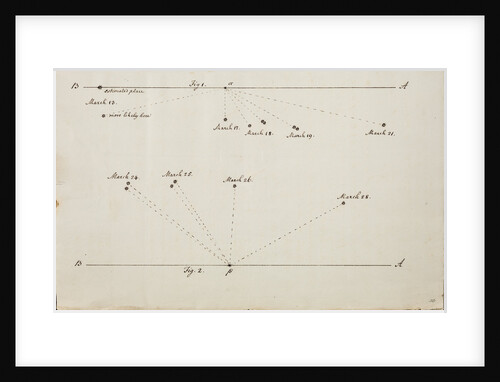 B Fig 1. α A
estimated place
March 13.
more likely here
March 17. March 18. March 19. March 21.
March 24. March 25. March 26.
March 28.
B Fig. 2. β A